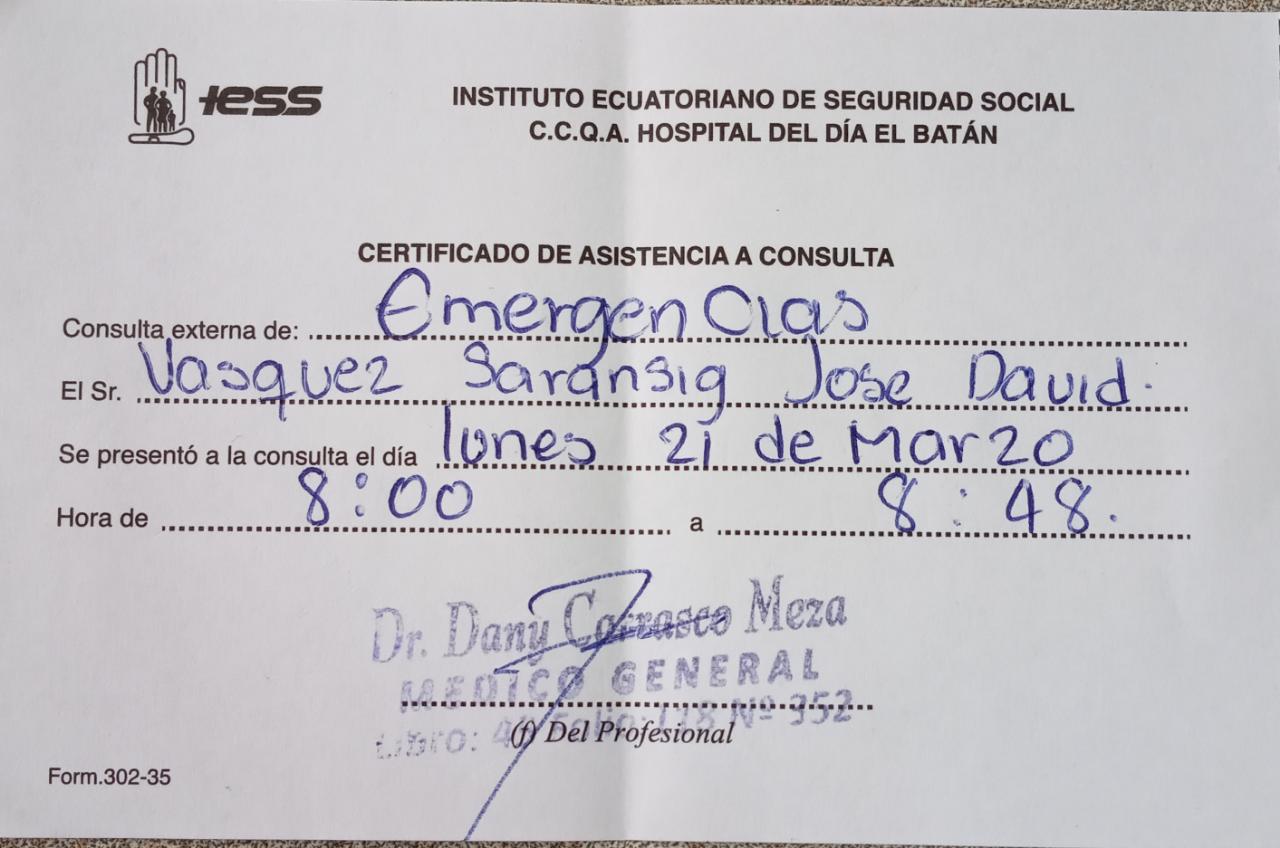 iess
INSTITUTO ECUATORIANO DE SEGURIDAD SOCIAL
C.C.Q.A. HOSPITAL DEL DÍA EL BATÁN
CERTIFICADO DE ASISTENCIA A CONSULTA
Consulta externa de: Emergencias
El Sr. Vasquez Saransig Jose David.
Se presentó a la consulta el día lunes 21 de Marzo
Hora de 8:00 a 8:48.
Dr. Dany Carrasco Meza
MEDICO GENERAL
Libro: Folio: 118 Nº 352
(f) Del Profesional
Form.302-35